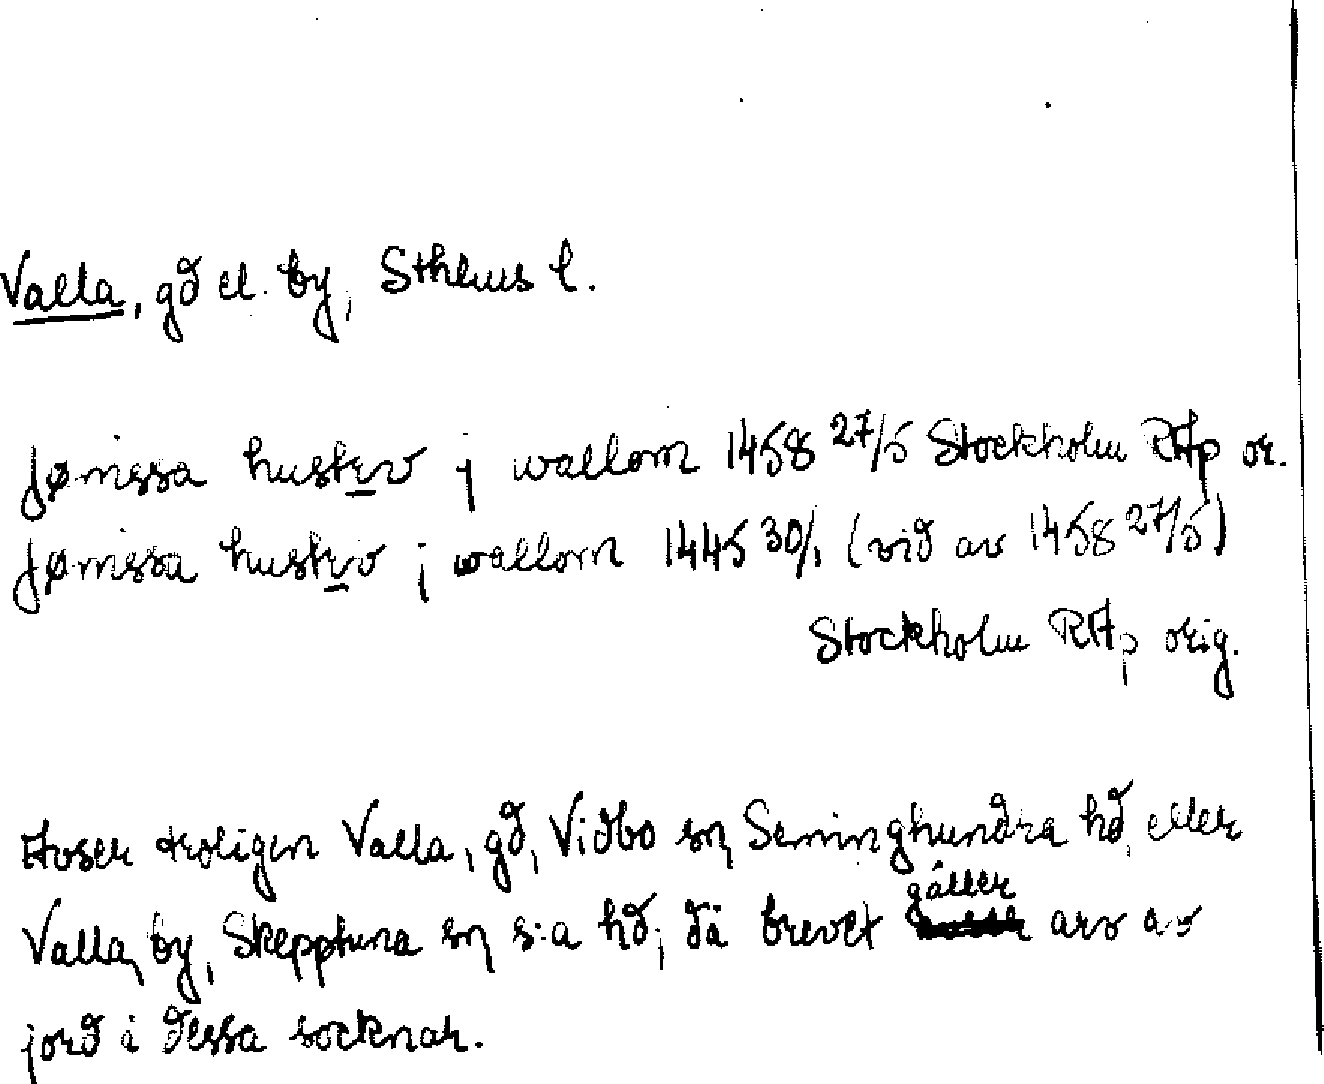 Valla, gd el. by, Sthlms l.
jønissa hustrv j wallom 1458 27/5 Stockholm RAp or.
jønissa hustrv j wallom 1445 30/1 (vid av 1458 27/5)
Stockholm RAp orig.
Avser troligen Valla, gd, Vidbo sn, Seminghundra hd, eller
Valla, by, Skepptuna sn, s:a hd, då brevet gäller arv av
jord i dessa socknar.